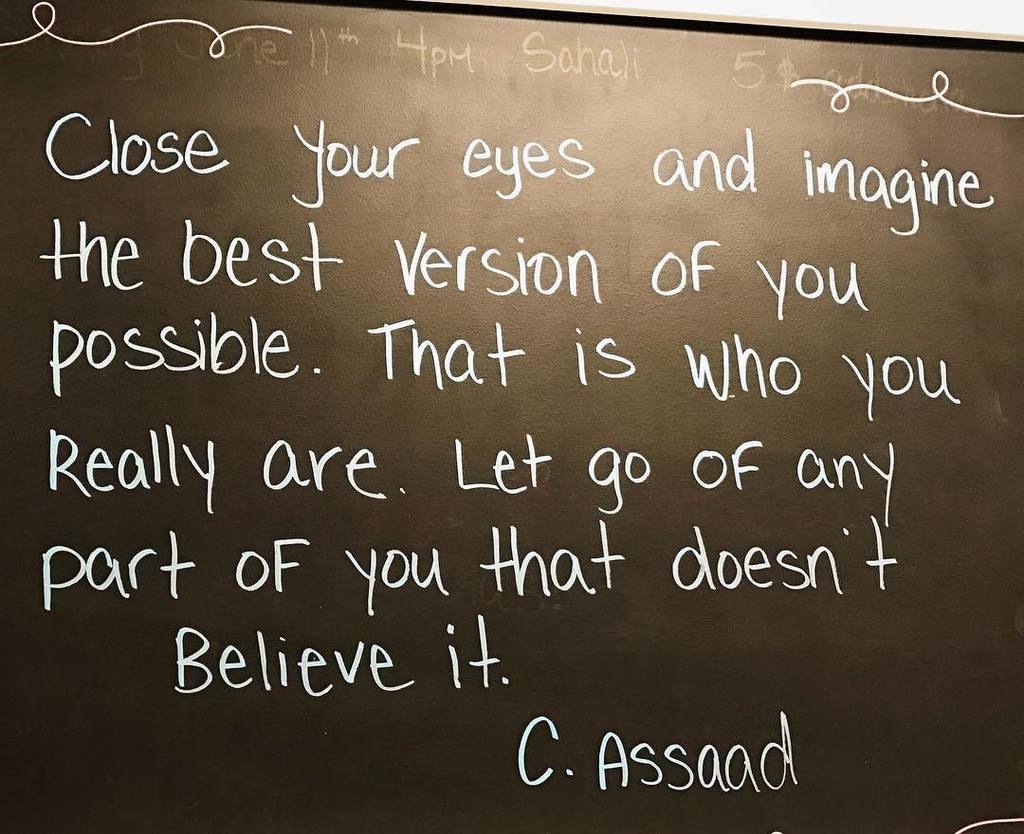 June 11th 4pm Sahali 5$
Close your eyes and imagine
the best version of you
possible. That is who you
Really are. Let go of any
part of you that doesn't
Believe it.
C. Assaad